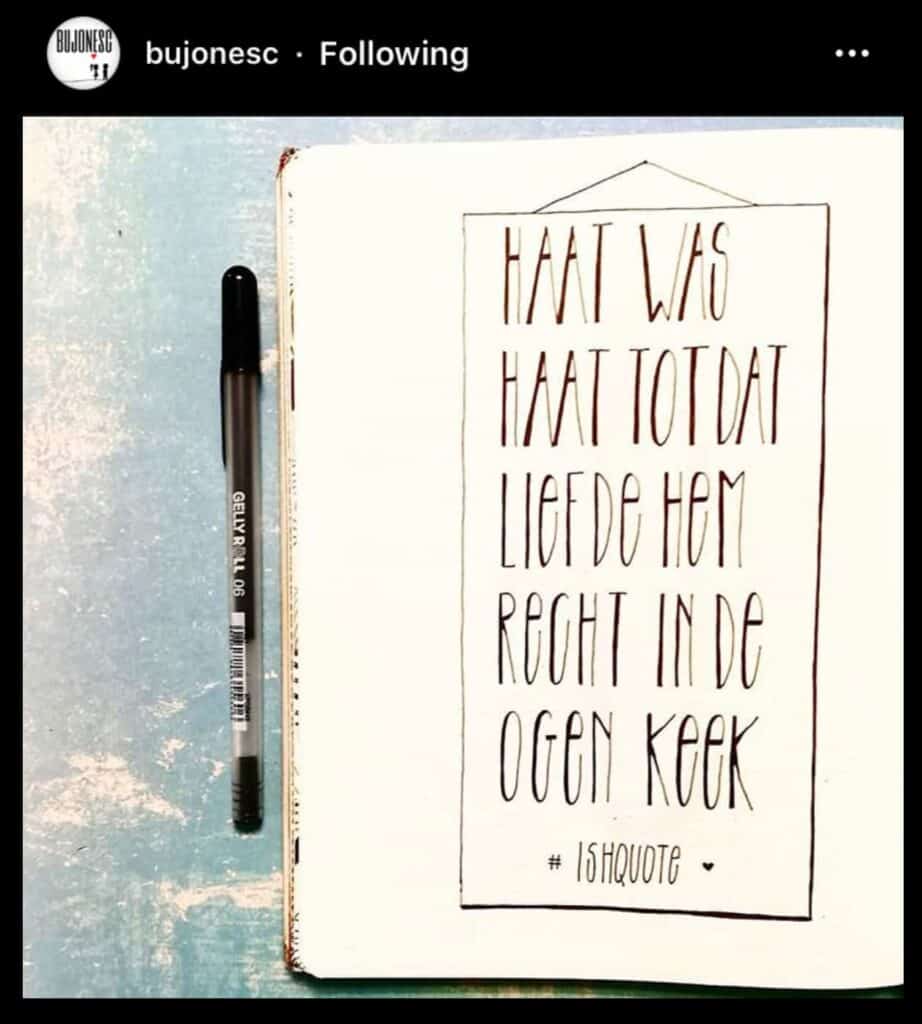 BUJONESC
bujonesc · Following
HAAT WAS
HAAT TOT DAT
LIEFDE HEM
RECHT IN DE
OGEN KEEK
# ISHQUOTE
GELLY ROLL 06